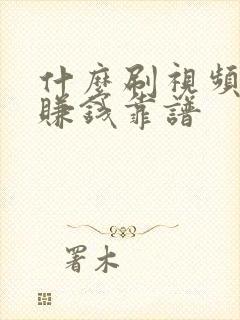 什麼刷視頻
賺錢靠譜
署木